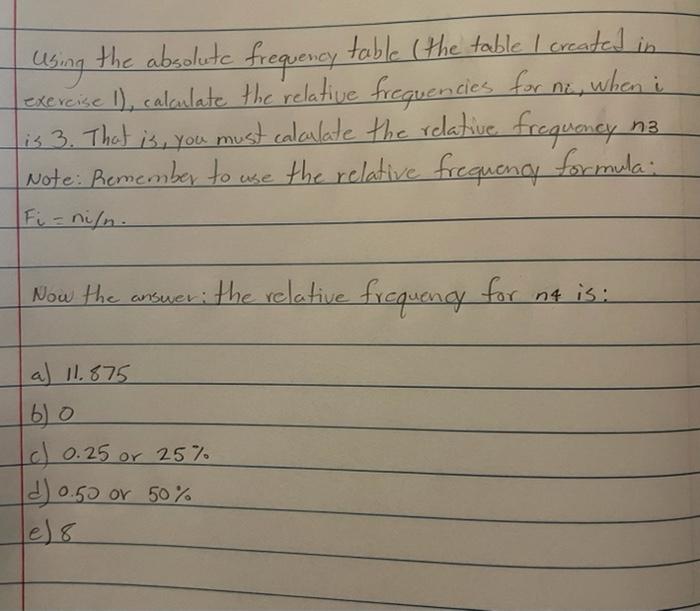 Using the absolute frequency table (the table I created in
exercise 1), calculate the relative frequencies for ni, when i
is 3. That is, you must calculate the relative frequency n3
Note: Remember to use the relative frequency formula:
Fi = ni/n.
Now the answer: the relative frequency for n4 is:
a) 11.875
b) 0
c) 0.25 or 25%
d) 0.50 or 50%
e) 8